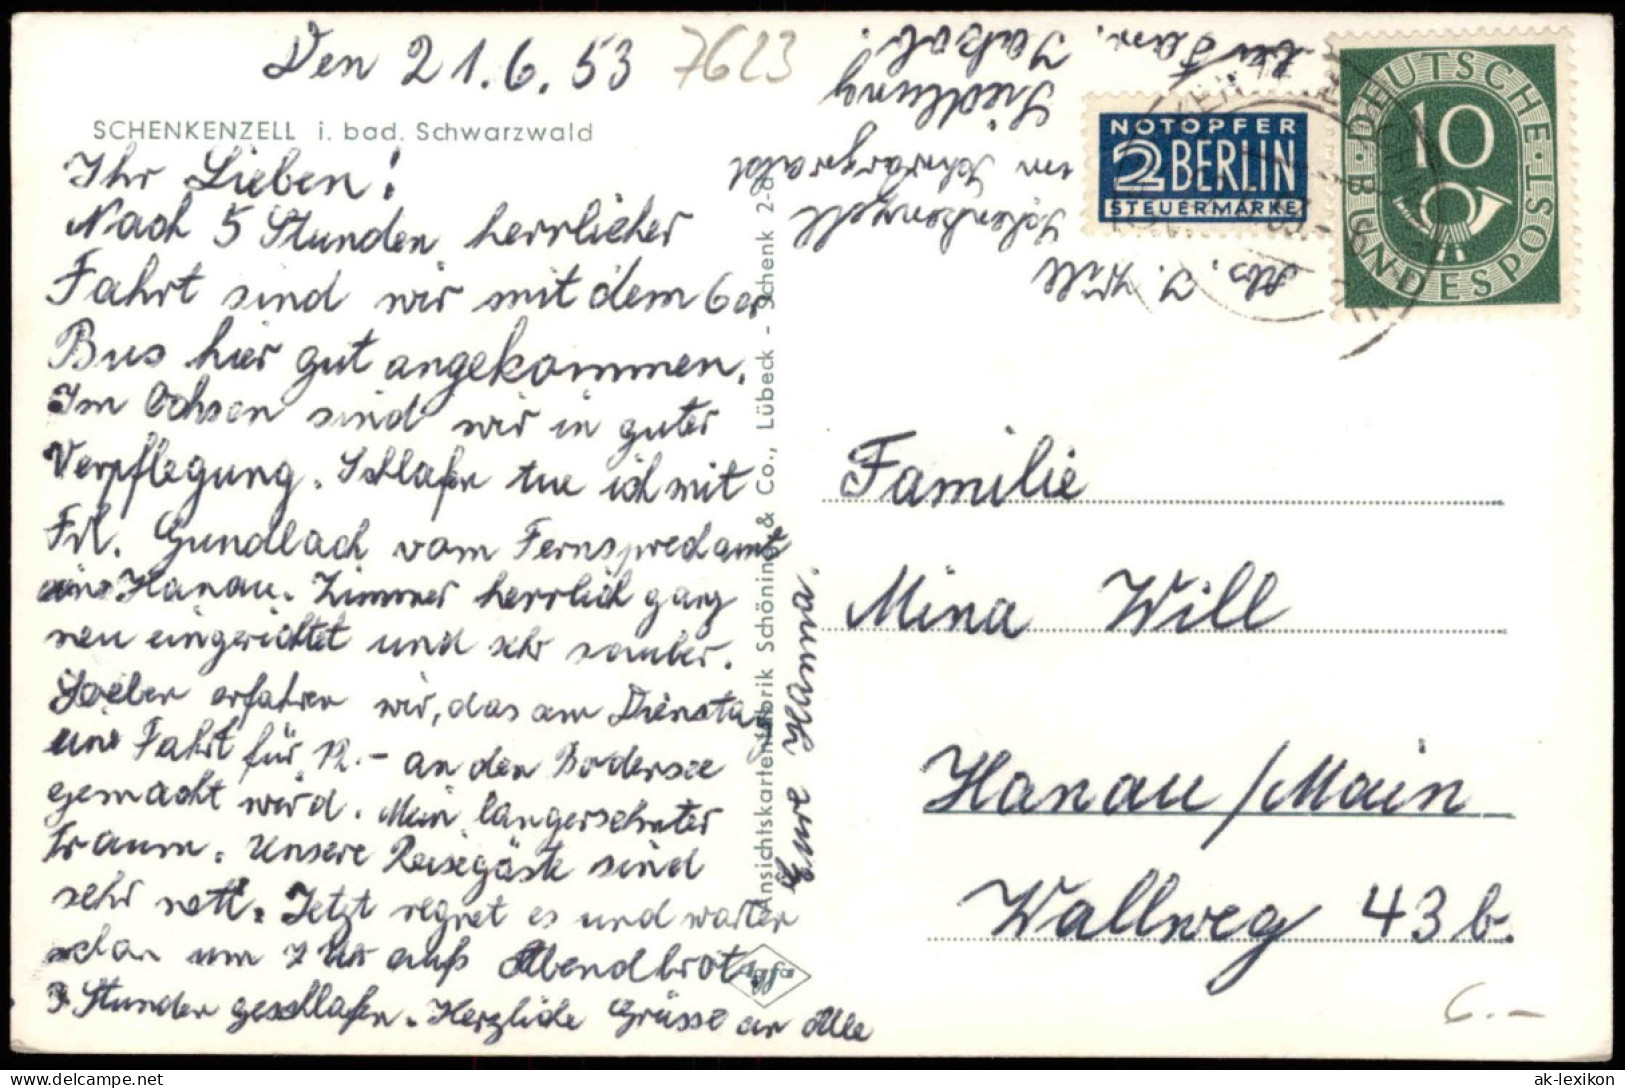 Den 21.6.53
7623
SCHENKENZELL i. bad. Schwarzwald
Ihr Lieben!
Nach 5 Stunden herrlicher
Fahrt sind wir mit dem 6er
Bus hier gut angekommen.
Im Ochsen sind wir in guter
Verpflegung. Schlafen tue ich mit
Frl. Gundlach vom Fernsprechamt
Hanau. Zimmer herrlich ganz
neu eingerichtet und sehr sauber.
Soeben erfahren wir, das am Dienstag
eine Fahrt für 12.- an den Bodensee
gemacht wird. Mein langersehnter
Traum. Unsere Reisegäste sind
sehr nett. Jetzt regnet es und warten
schon um 7 Uhr aufs Abendbrot.
3 Stunden geschlafen. Herzliche Grüsse an Alle
Eure Hanna.
Ansichtskartenfabrik Schöning & Co., Lübeck - Schenk 2-a
Agfa
Abs. J. Will
Schenkenzell
im Schwarzwald
Siedlung
bei Fam. Jakob!
NOTOPFER
2 BERLIN
STEUERMARKE
DEUTSCHE BUNDESPOST
10
Familie
Mina Will
Hanau/Main
Wallweg 43 b.
6.-
ak-ansichtskarten.de
ak-lexikon